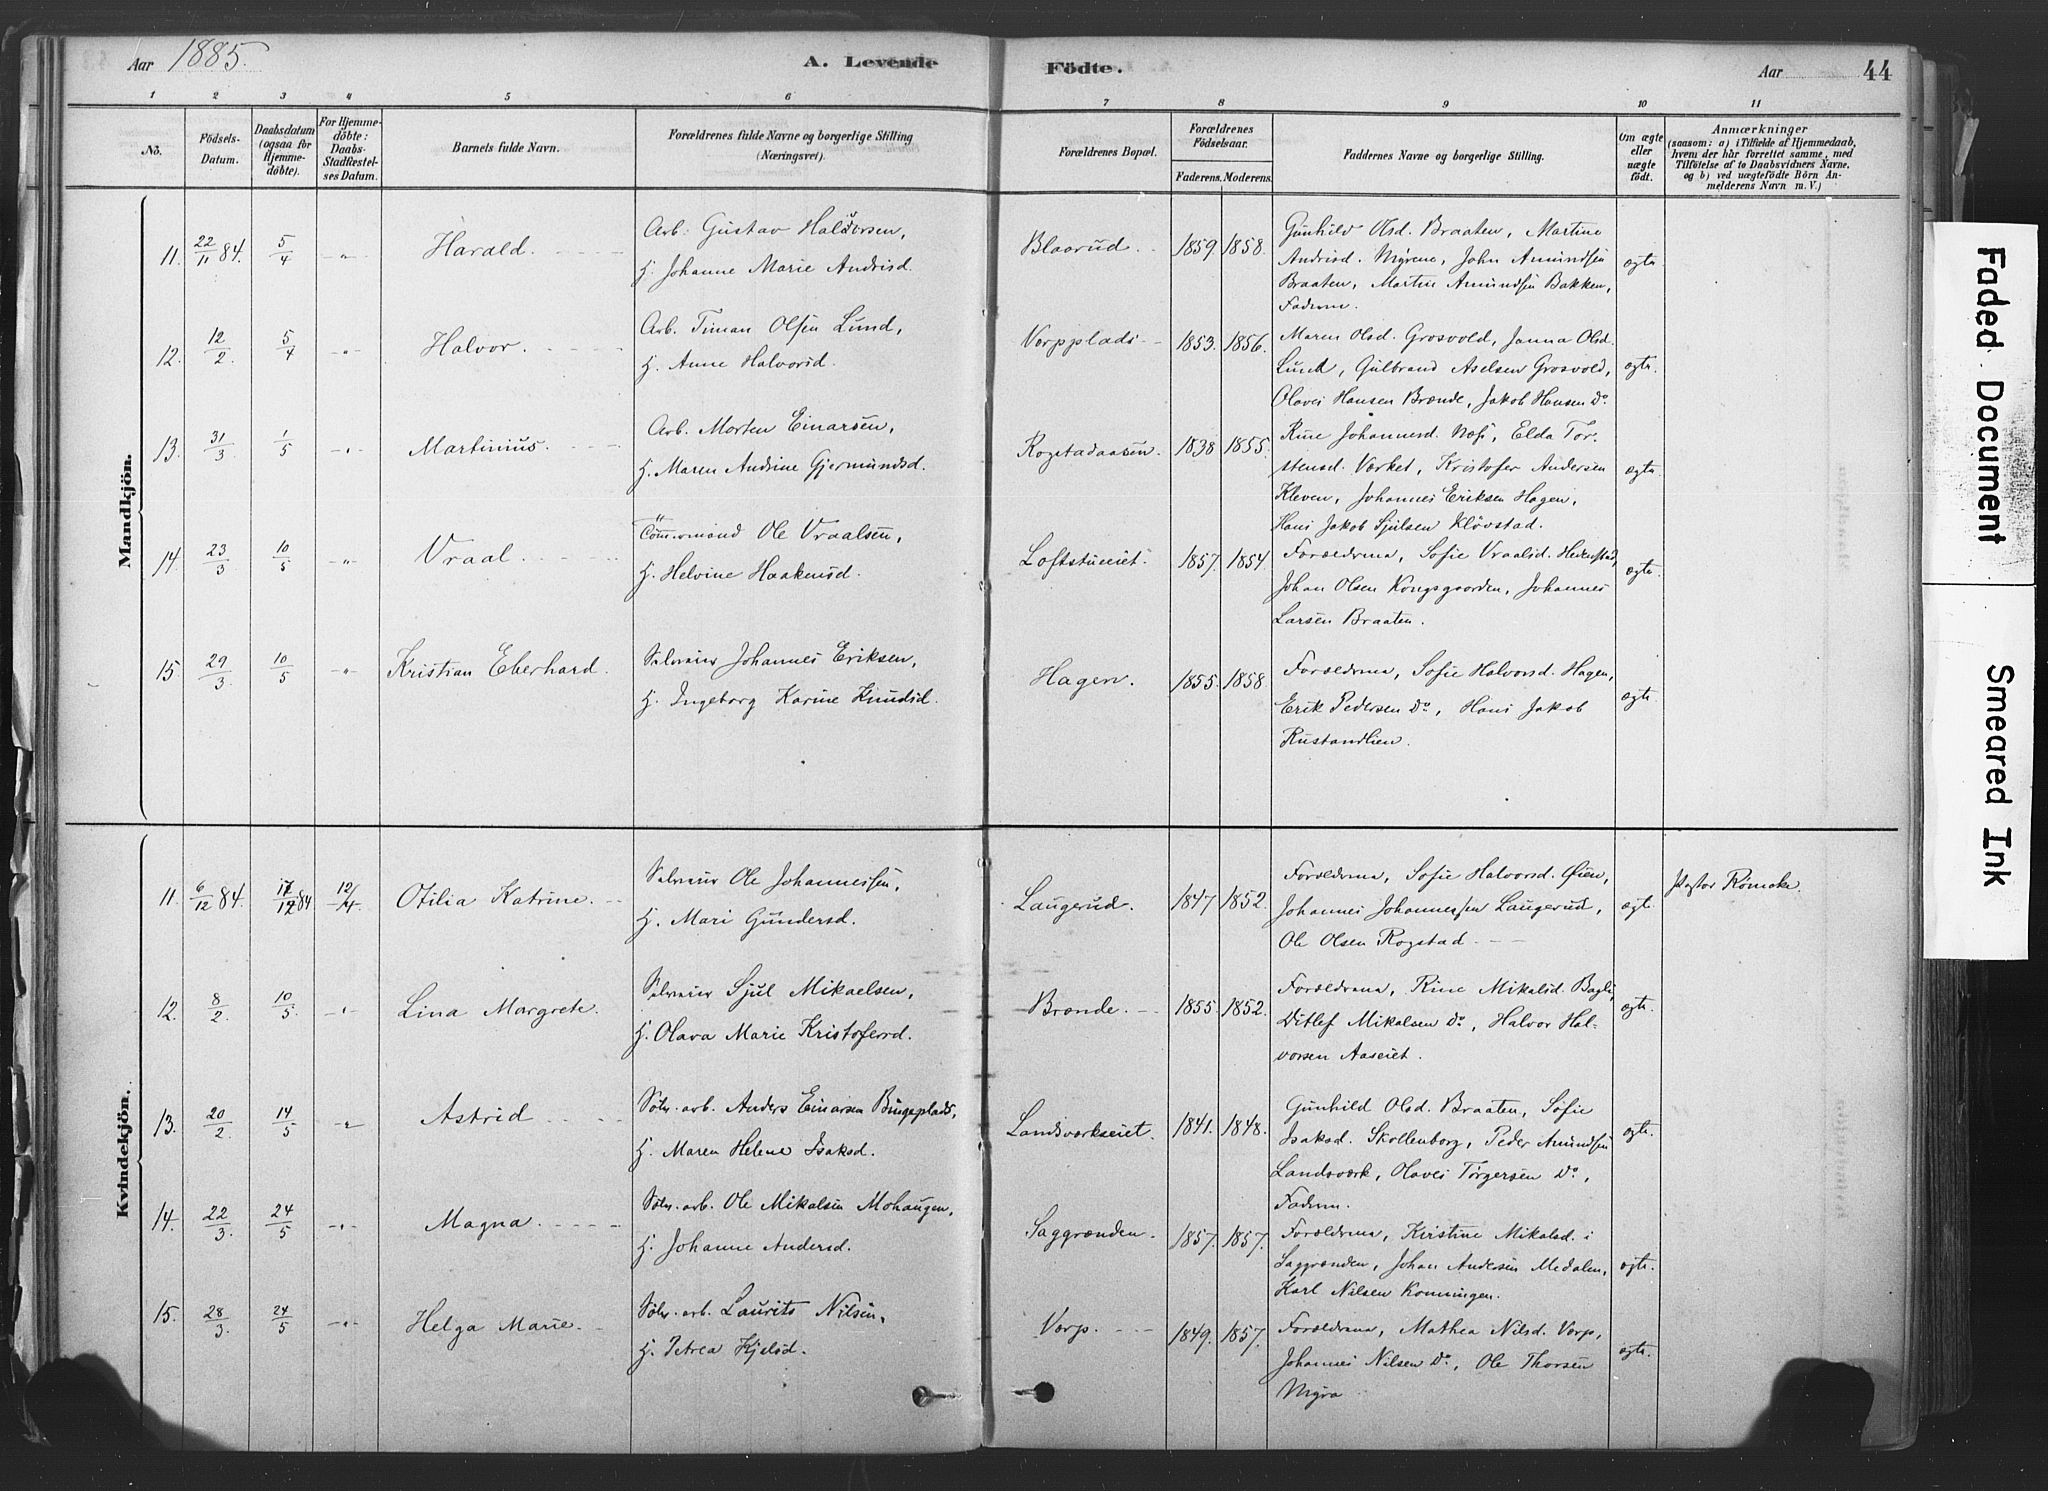 Aar 1885. A. Levende Födte. Aar 44
1 2 3 4 5 6 7 8 9 10 11
No. Födsels-Datum. Daabsdatum (ogsaa for Hjemme-döbte). For Hjemme-döbte: Daabs-Stadfæstel-ses Datum. Barnets fulde Navn. Forældrenes fulde Navne og borgerlige Stilling (Næringsvei). Forældrenes Bopæl. Forældrenes Födselsaar. Faderens. Moderens. Faddernes Navne og borgerlige Stilling. Om ægte eller uægte födt. Anmærkninger (saasom: a) i Tilfælde af Hjemmedaab, hvem der har forrettet samme, med Tilföielse af to Daabsvidners Navne, og b) ved uægtefödte Börn An-melderens Navn m. V.)
Mandkjön.
11. 22/11 84. 5/4 -"- Harald. Arb. Gustav Halvorsen, Blaarud. 1859. 1858. Gunhild Olsd. Braaten, Martine
H. Johanne Marie Andrisd. Andrisd. Myrene, John Amundsen ægte.
Braaten, Martin Amundsen Bakken,
Faderen.
12. 12/2 5/4 -"- Halvor. Arb. Timan Olsen Lund, Vorpplads 1853. 1856. Maren Olsd. Grosvold, Janna Olsd.
H. Anne Halvorsd. Lund, Gulbrand Aselsen Grosvold, ægte.
Olaves Hansen Brænde, Jakob Hansen Do
13. 31/3 1/5 -"- Martinius. Arb. Morten Einarsen, Rogstadaasen. 1838 1855. Rine Johannesd. Næss, Elda Tor-
H. Maren Andrine Gjermundsd. stensd. Værket, Kristofer Andersen ægte
Kleven, Johannes Eriksen Hagen,
Hans Jakob Sjulsen Klövstad.
14. 23/3 10/5 -"- Vraal Ole Vraalsen, Loftstueiet. 1857. 1854. Forældrene, Sofie Vraalsd. Hedenstad,
H. Helvine Haakensd. Johan Olsen Kongsgaarden, Johannes ægte.
Larsen Braaten.
15. 29/3 10/5 -"- Kristian Eberhard. Selveier Johannes Eriksen, Hagen. 1855. 1858 Forældrene, Sofie Halvorsd. Hagen,
H. Ingeborg Karine Knudsd. Erik Pedersen Do, Hans Jakob ægte
Rustandlien.
Kvindekjön.
11. 6/12 84. 17/12 84 12/4 Otilia Katrine. Selveier Ole Johannessen, Laugerud. 1847 1852. Forældrene, Sofie Halvorsd. Öien, Pastor Römcke.
H. Mari Gundersd. Johannes Johannessen Laugerud, ægte.
Ole Olsen Rogstad.
12. 8/2 10/5 -"- Lina Margrete. Selveier Sjul Mikaelsen, Brænde. 1855. 1852. Forældrene, Rine Mikalsd. Bagli,
H. Olava Marie Kristofersd. Ditlef Mikalsen Do, Halvor Hal- ægte.
vorsen Aaseiet.
13. 20/2 14/5 -"- Astrid Sölv. arb. Anders Einarsen Bingeplads, Landsværkseiet. 1841. 1848. Gunhild Olsd. Braaten, Sofie
H. Maren Helene Isaksd. Isaksd. Skollenborg, Peder Amundsen ægte.
Landsværk, Olaves Törgersen Do,
Faderen.
14. 22/3. 24/5 -"- Magna. Sölv. arb. Ole Mikalsen Mohaugen, Saggrænden. 1857. 1857. Forældrene, Kirstine Mikalsd. i
H. Johanne Andersd. Saggrænden, Johan Andersen Medalen, ægte.
Karl Nilsen Konningen.
15. 28/3. 24/5 -"- Helga Marie. Sölv. arb. Laurits Nilsen. Vorp. 1849. 1857. Forældrene, Mathea Nilsd. Vorp,
H. Petrea Kjelsd. Johannes Nilsen Do, Ole Thorsen ægte.
Myra
Faded Document
Smeared Ink